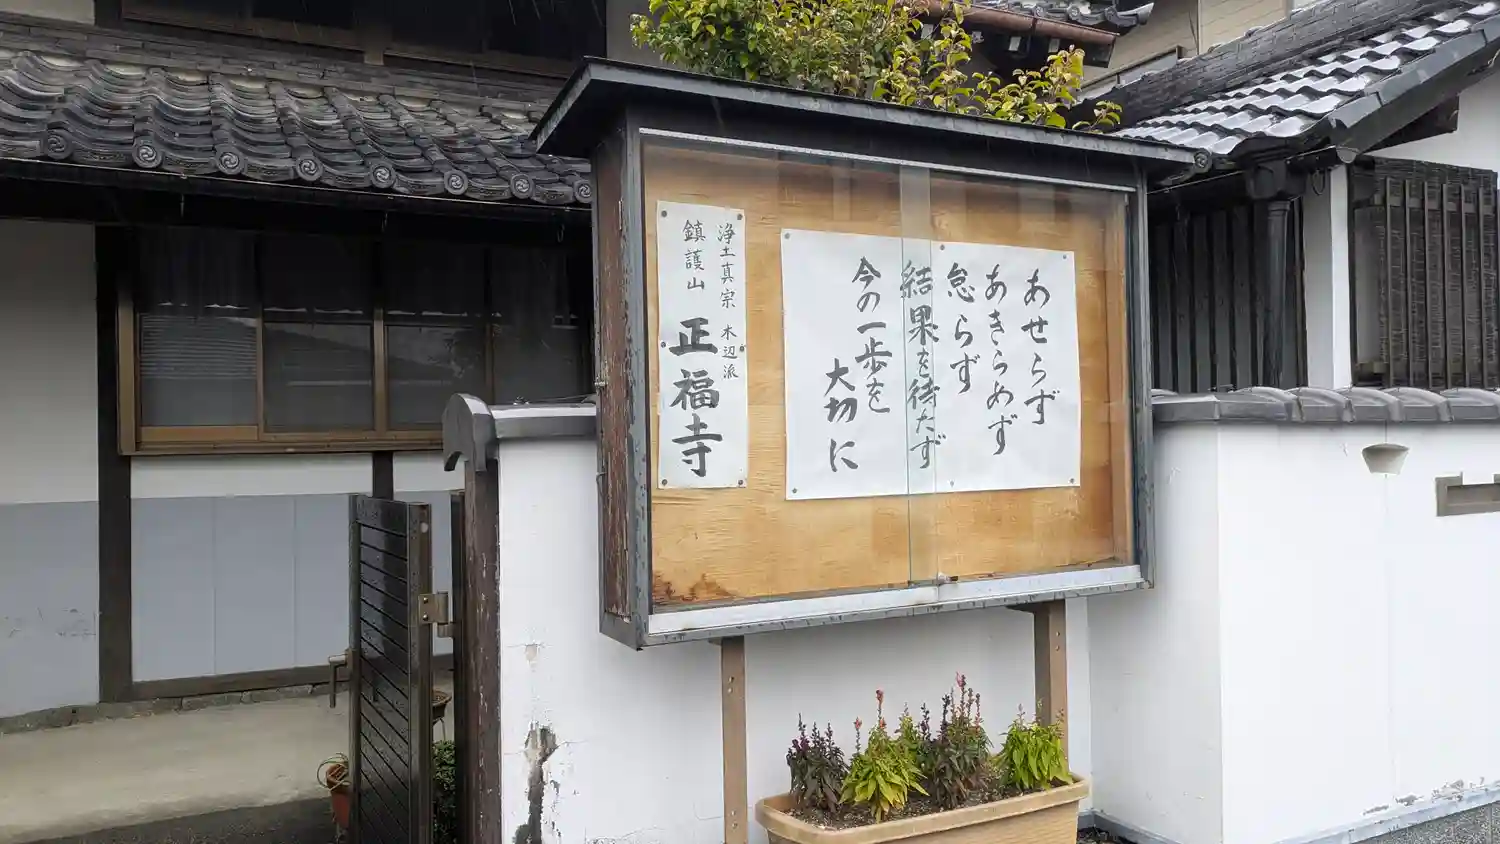 あせらず
あきらめず
怠らず
結果を待たず
今の一歩を
大切に
浄土真宗 木辺派
鎮護山 正福寺